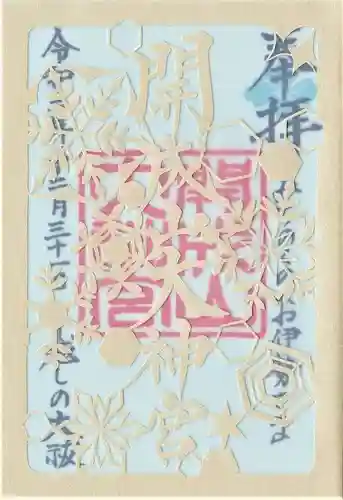 奉拝
のお伊勢さま
開成山大神宮
令和二年十二月三十一日 年越しの大祓